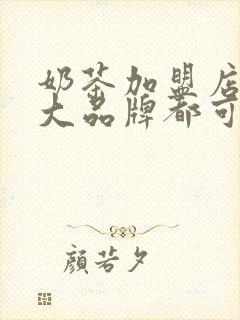 奶茶加盟店
大品牌都可
顏若夕